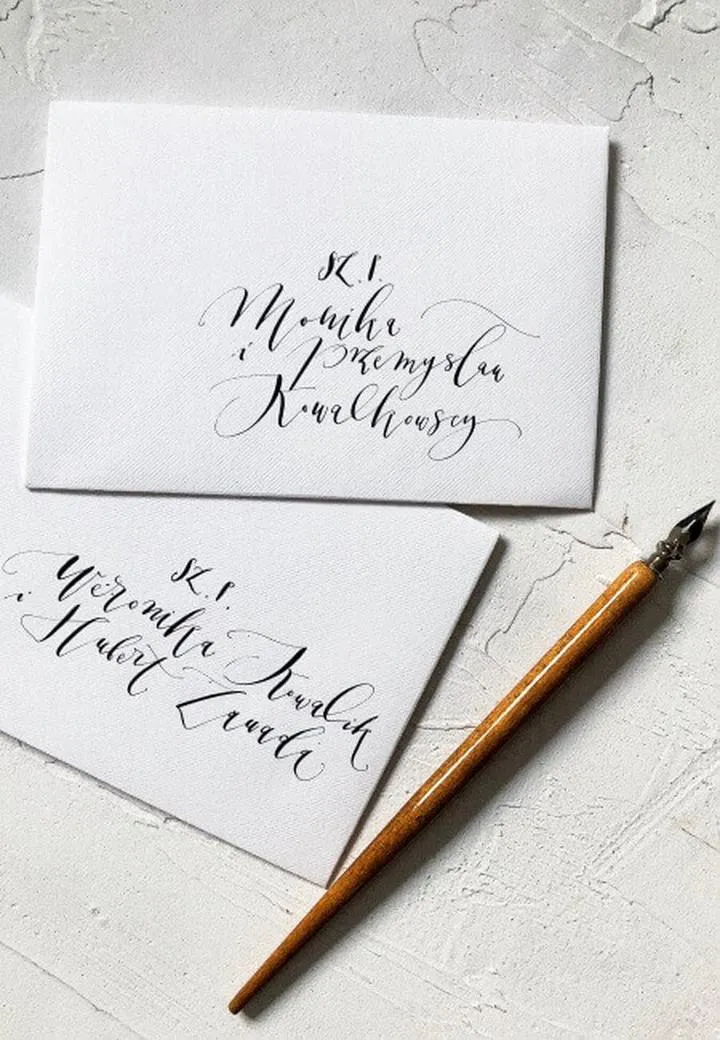 SZ. P.
Monika
i Przemysław
Kowalkowscy
SZ. P.
Weronika Kowalik
i Hubert Zawada